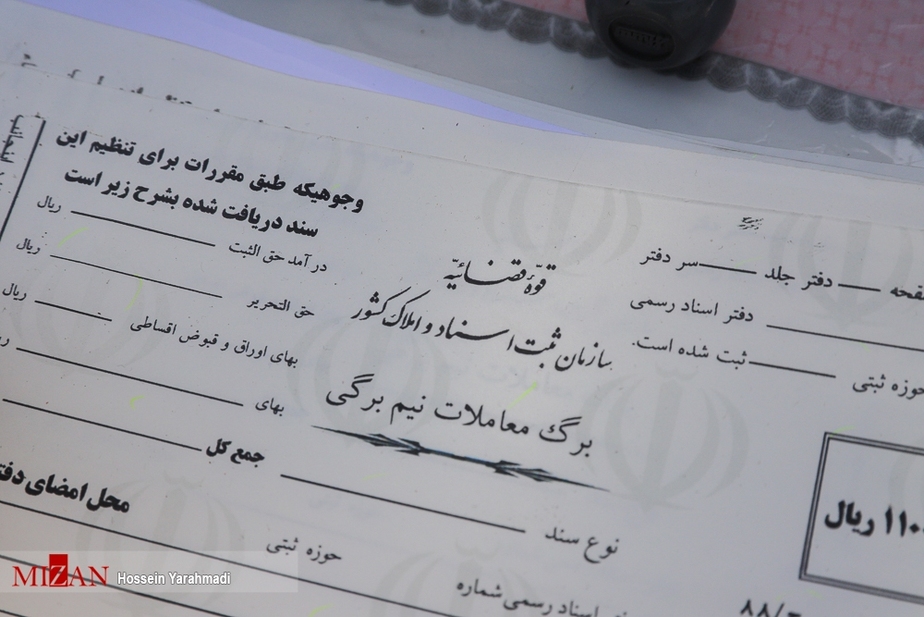 وجوهیکه طبق مقررات برای تنظیم این
سند دریافت شده بشرح زیر است
در آمد حق الثبت ریال
حق التحریر ریال
بهای اوراق و قبوض اقساطی ریال
بهای
جمع کل
محل امضای
قوّهٔ قضائیّه
سازمان ثبت اسناد و املاک کشور
برگ معاملات نیم برگی
نوع سند
حوزه ثبتی
اسناد رسمی شماره
دفتر جلد سر دفتر
دفتر اسناد رسمی
حوزه ثبتی ثبت شده است.
ریال
MIZAN
Hossein Yarahmadi